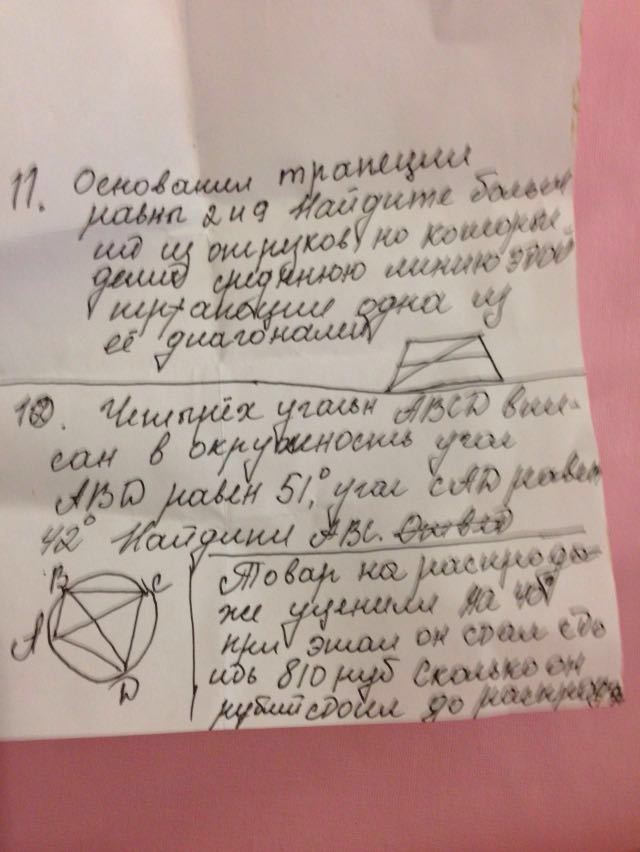 11. Основания трапеции
равны 2 и 9 Найдите больш
ий из отрезков, но которые
делит среднюю линию этой
трапеции одна из
её диагоналей
10. Четырёх угальн ABCD впи-
сан в окружность угал
ABD равен 51°, угал CAD равен
42° Найдити ABC.
B C
A
D
Товар на распрода-
же уценили на 40%
при этом он стал сто
ить 810 руб Сколько он
рублий стоил до распрода